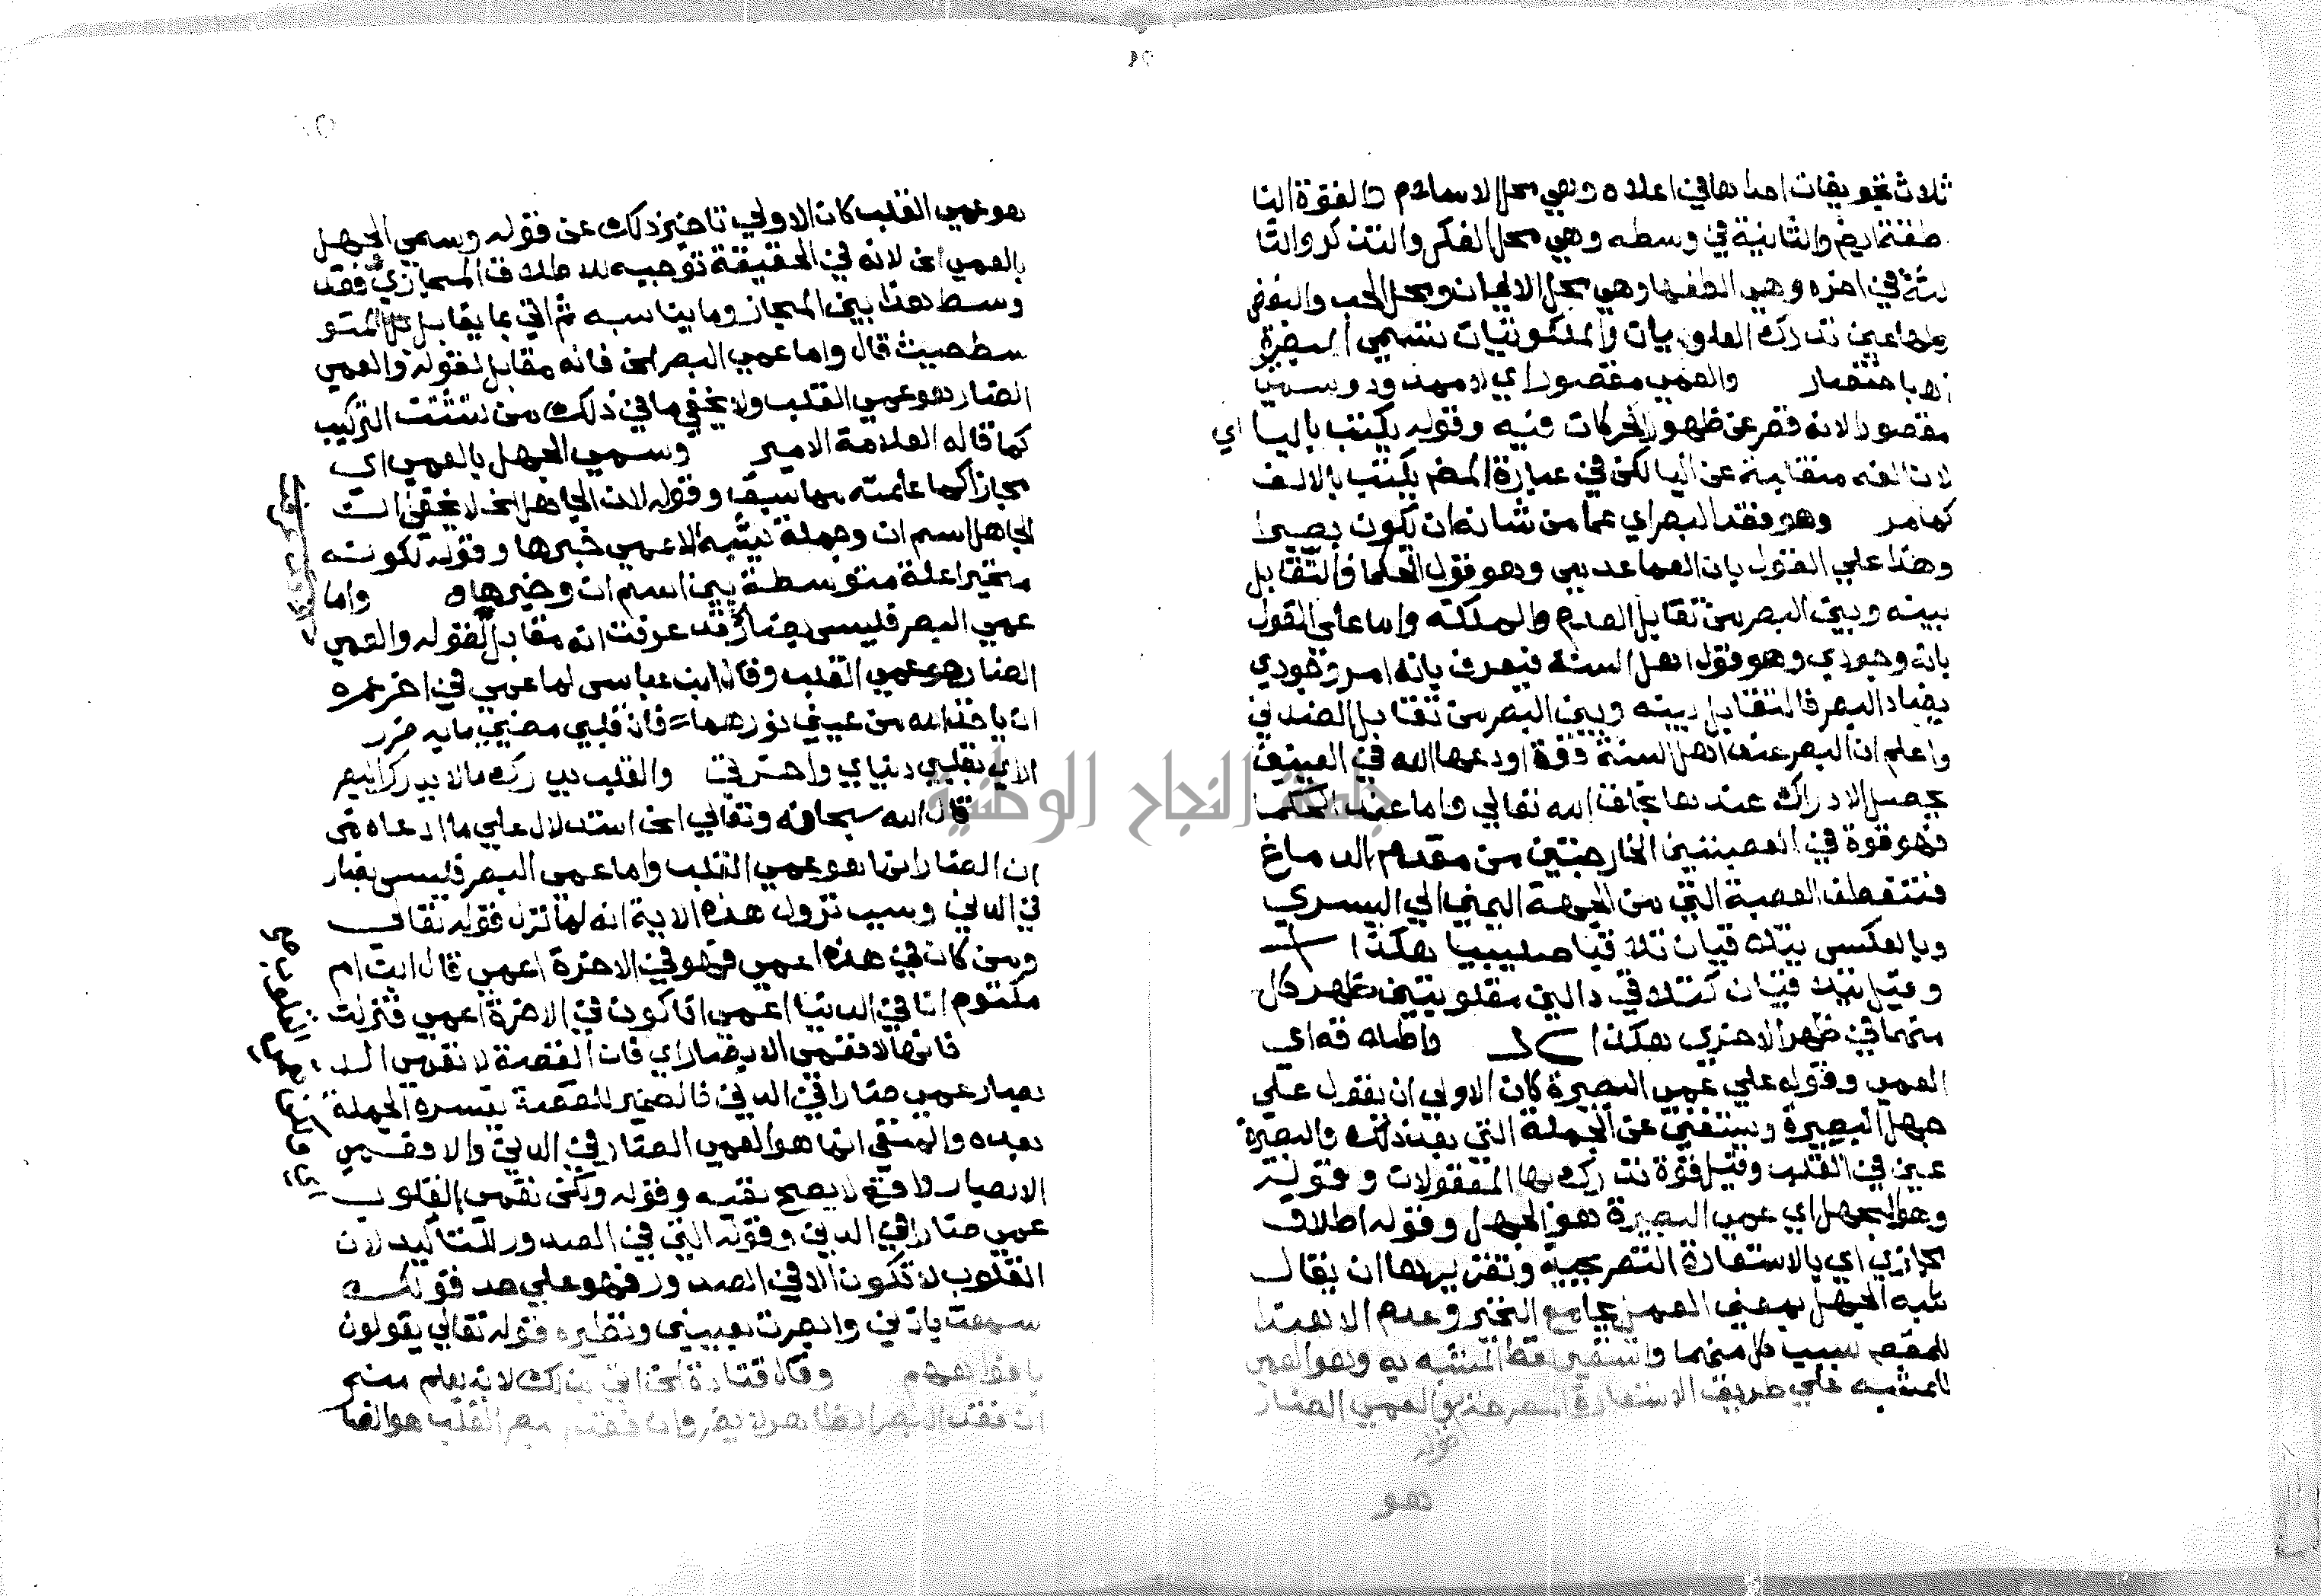 ٢٥
ثلاث تجويفات احداها في اعلاه وهي محل الاسلام والقوة النا
طقة ايض والثانية في وسطه وهي محل الفكر والتذكر والثا
لثة في اخره وهي الطفها وهي محل الايمان ومحل الحب والبغض
ولها عين تدرك العلويات والملكوتيات تسمى البصيرة
اه باختصار والعمى مقصورا اي لا ممدود وسمي
مقصورا لانه قصر عن ظهور الحركات فيه وقوله يكتب باليا اي
لان الفه منقلبة عن اليا لكن في عبارة المص يكتب بالالف
كما مر وهو فقد البصر اي عما من شانه ان يكون بصيرا
وهذا على القول بان العما عدمي وهو قول الحكما فالتقابل
بينه وبين البصر من تقابل العدم والملكة واما على القول
بانه وجودي وهو قول اهل السنة فيعرف بانه امر وجودي
يضاد البصر فالتقابل بينه وبين البصر من تقابل الضدين
واعلم ان البصر عند اهل السنة قوة اودعها الله في العينين
يحصل الادراك عندها بخلق الله تعالي واما عند الحكما
فهو قوة في العصبتين الخارجتين من مقدم الدماغ
فتنعطف العصبة التي من الجهة اليمني الي اليسري
وبالعكس يتلاقيان تلاقيا صليبيا هكذا
وقيل يتلاقيان كتلاقي دالين مقلوبتين ظهر كل
منهما في ظهر الاخري هكذا واطلاقه اي
العمى وقوله علي عمى البصيرة كان الاولي ان يقول علي
جهل البصيرة ويستغني عن الجملة التي بعد ذلك والبصيرة
عين في القلب وقيل قوة تدرك بها المعقولات وقوله
وهو الجهل اي عمى البصيرة هو الجهل وقوله اطلاق
مجازي اي بالاستعارة التصريحية وتقريرها ان يقال
شبه الجهل بمعني العمى بجامع التحير وعدم الاهتدا
للمقصد بسبب كل منهما واستعير لفظ المشبه به وهو العمى
للمشبه علي طريق الاستعارة والعمي الضار
قوله
هو
٢٥
هو عمي القلب كان الاولي تاخير ذلك عن قوله وسمي الجهل
بالعمى الخ لانه في الحقيقة توجيه للاطلاق المجازي فقد
وسط هذا بين المجاز وما يناسبه ثم اتي بما يقابل المتو
سط حيث قال واما عمي البصر الخ فانه مقابل لقوله والعمى
الضار هو عمي القلب ولا يخفي ما في ذلك من تشتت التركيب
كما قاله العلامة الامير وسمي الجهل بالعمى اي
مجازا كما علمته مما سبق وقوله لان الجاهل الخ لا يخفي ان
الجاهل اسم ان وجملة يشبه الاعمي خبرها وقوله لكونه
متحيرا علة متوسطة بين اسم ان وخبرها واما
عمي البصر فليس بضار قد عرفت انه مقابل لقوله والعمى
الضار هو عمي القلب وقال ابن عباس لما عمي في اخر عمره
ان ياخذ الله من عيني نورهما = فان قلبي مضيء ما به ضرر
اري بقلبي دنياي واخرتي والقلب يدرك ما لا يدرك البصر
قال الله سبحانه وتعالي الخ استدلال علي ما ادعاه من
ان الضار انما هو عمي القلب واما عمى البصر فليس بضار
في الدين وسبب نزول هذه الاية انه لما نزل قوله تعالي
ومن كان في هذه اعمي فهو في الاخرة اعمي قال ابن ام
مكتوم انا في الدنيا اعمى افاكون في الاخرة اعمي فنزلت
فانها لا تعمى الابصار اي فان القصة لا تعمى الا
بصار عمى ضارا في الدين فالضمير للقصة يفسره الجملة
بعده والمنفي انما هو العمى الضار في الدين والا فعمى
الابصار واقع لا يصح نفيه وقوله ولكن تعمى القلوب
عمي ضارا في الدين وقوله التي في الصدور للتاكيد لان
القلوب لا تكون الا في الصدور فهو علي حد قولك
سمعت باذني وابصرت بعيني ونظيره قوله تعالي يقولون
بافواههم وقال قتادة الخ اتي بذلك لانه يعلم منه
ان فقد البصر الظاهر لا يضر وان فقد بصر القلب هو الضار